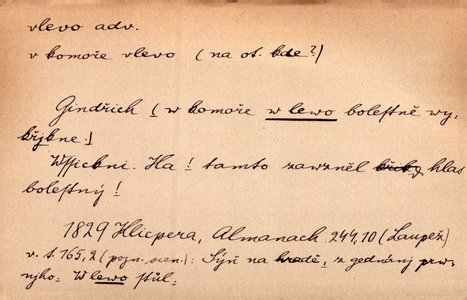 vlevo adv.
v komoře vlevo (na ot. kde?)
Gindřich (w komoře w lewo bolestně wy-
křjkne.)
Wssickni. Ha! tamto zawzněl hlas
bolestný!
1829 Klicpera, Almanach 244,10 (Laupež)
v. t. 165,2 (pozn. scen.): Sýň na hradě, z gednánj prw-
njho. W lewo stůl.